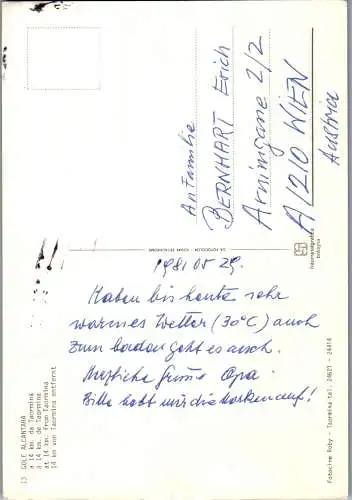 13 GOLE ALCANTARA
a 14 km. da Taormina
à 14 km. de Taormina
at 14 km. from Taormina
14 km von Taormina entfernt
1981 05 29.
Haben bis heute sehr
warmes Wetter (30°C) auch
zum baden geht es auch.
Herzliche Grüsse Opa.
Bitte hebt mir die Marken auf!
An Familie
BERNHART Erich
Arnimgasse 2/2
A/1210 WIEN
Austria
bologna
Fotocine Roby - Taormina tel. 24621 - 24414